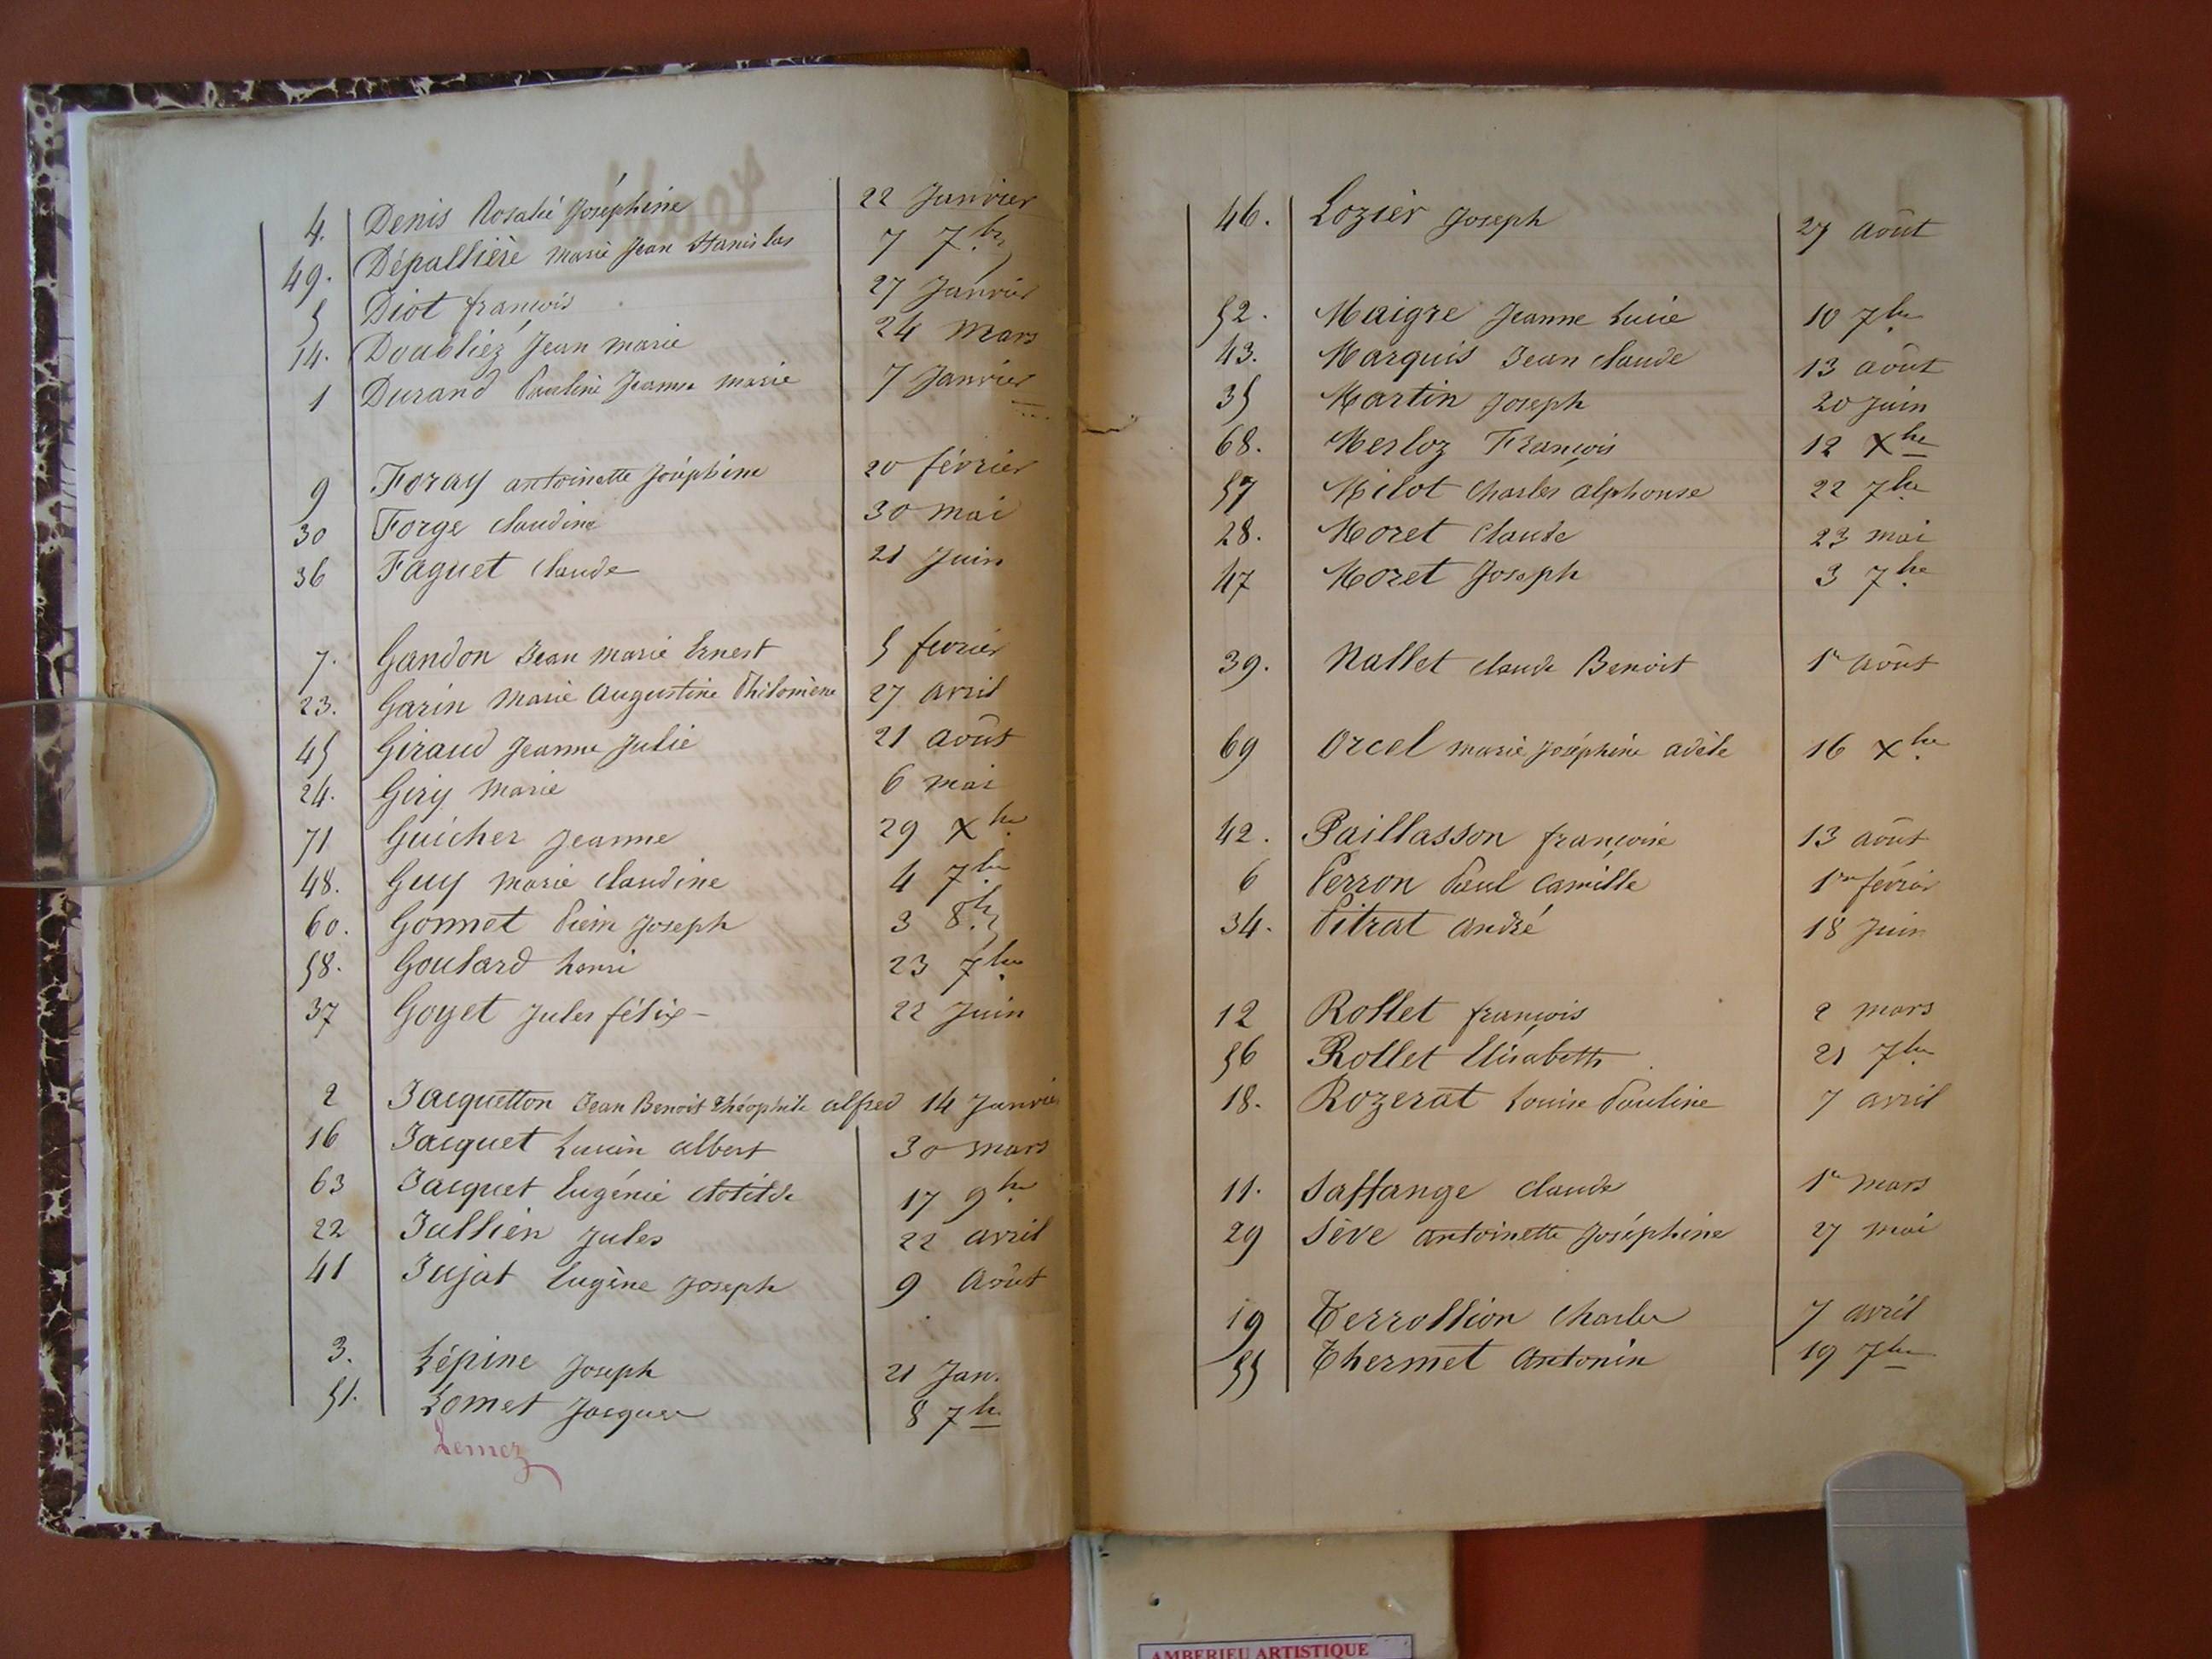 4. Denis Rosalie Joséphine 22 Janvier
49. Dépallière Marie Jean Stanislas 7 7bre
5 Diot françois 27 Janvier
14. Doubliez Jean Marie 24 Mars
1 Durand Pauline Jeanne Marie 7 Janvier
9 Foray antoinette Joséphine 20 février
30 Forge Claudine 30 Mai
36 Faguet Claude 21 Juin
7. Gandon Jean Marie Ernest 5 fevrier
23. Garin Marie Augustine Philomène 27 avril
45 Giraud Jeanne Julie 21 août
24. Giry Marie 6 mai
71 Guicher Jeanne 29 Xbre
48. Guy Marie Claudine 4 7bre
60. Gonnet Pierre Joseph 3 8bre
58. Goulard henri 23 7bre
37 Goyet Jules félix 22 Juin
2 Jacquetton Jean Benoit théophile alfred 14 Janvier
16 Jacquet Lucien albert 30 mars
63 Jacquet Eugénie Clotilde 17 9bre
22 Jullien Jules 22 avril
41 Jujat Eugène Joseph 9 Août
3. Lépine Joseph 21 Jan.
51. Lomet Jacques 8 7bre
Lemez
46. Lozier Joseph 27 août
52. Maigre Jeanne Lucie 10 7bre
43. Marquis Jean Claude 13 août
35 Martin Joseph 20 Juin
68. Merloz François 12 Xbre
57 Milot Charles alphonse 22 7bre
28. Moret Claude 23 mai
47 Moret Joseph 3 7bre
39. Nallet Claude Benoit 1er août
69 Orcel marie Joséphine adèle 16 Xbre
42. Paillasson françoise 13 août
6 Perron Paul Camille 1er février
34. Pitrat André 18 Juin
12 Rollet françois 2 mars
56 Rollet Elisabeth 21 7bre
18. Rozerat Louise Pauline 7 avril
11. Saffange Claude 1er mars
29 Sève Antoinette Joséphine 27 mai
19 Terrollion Charles 7 avril
55 Thermet Antonin 19 7bre
AMBERIEU ARTISTIQUE